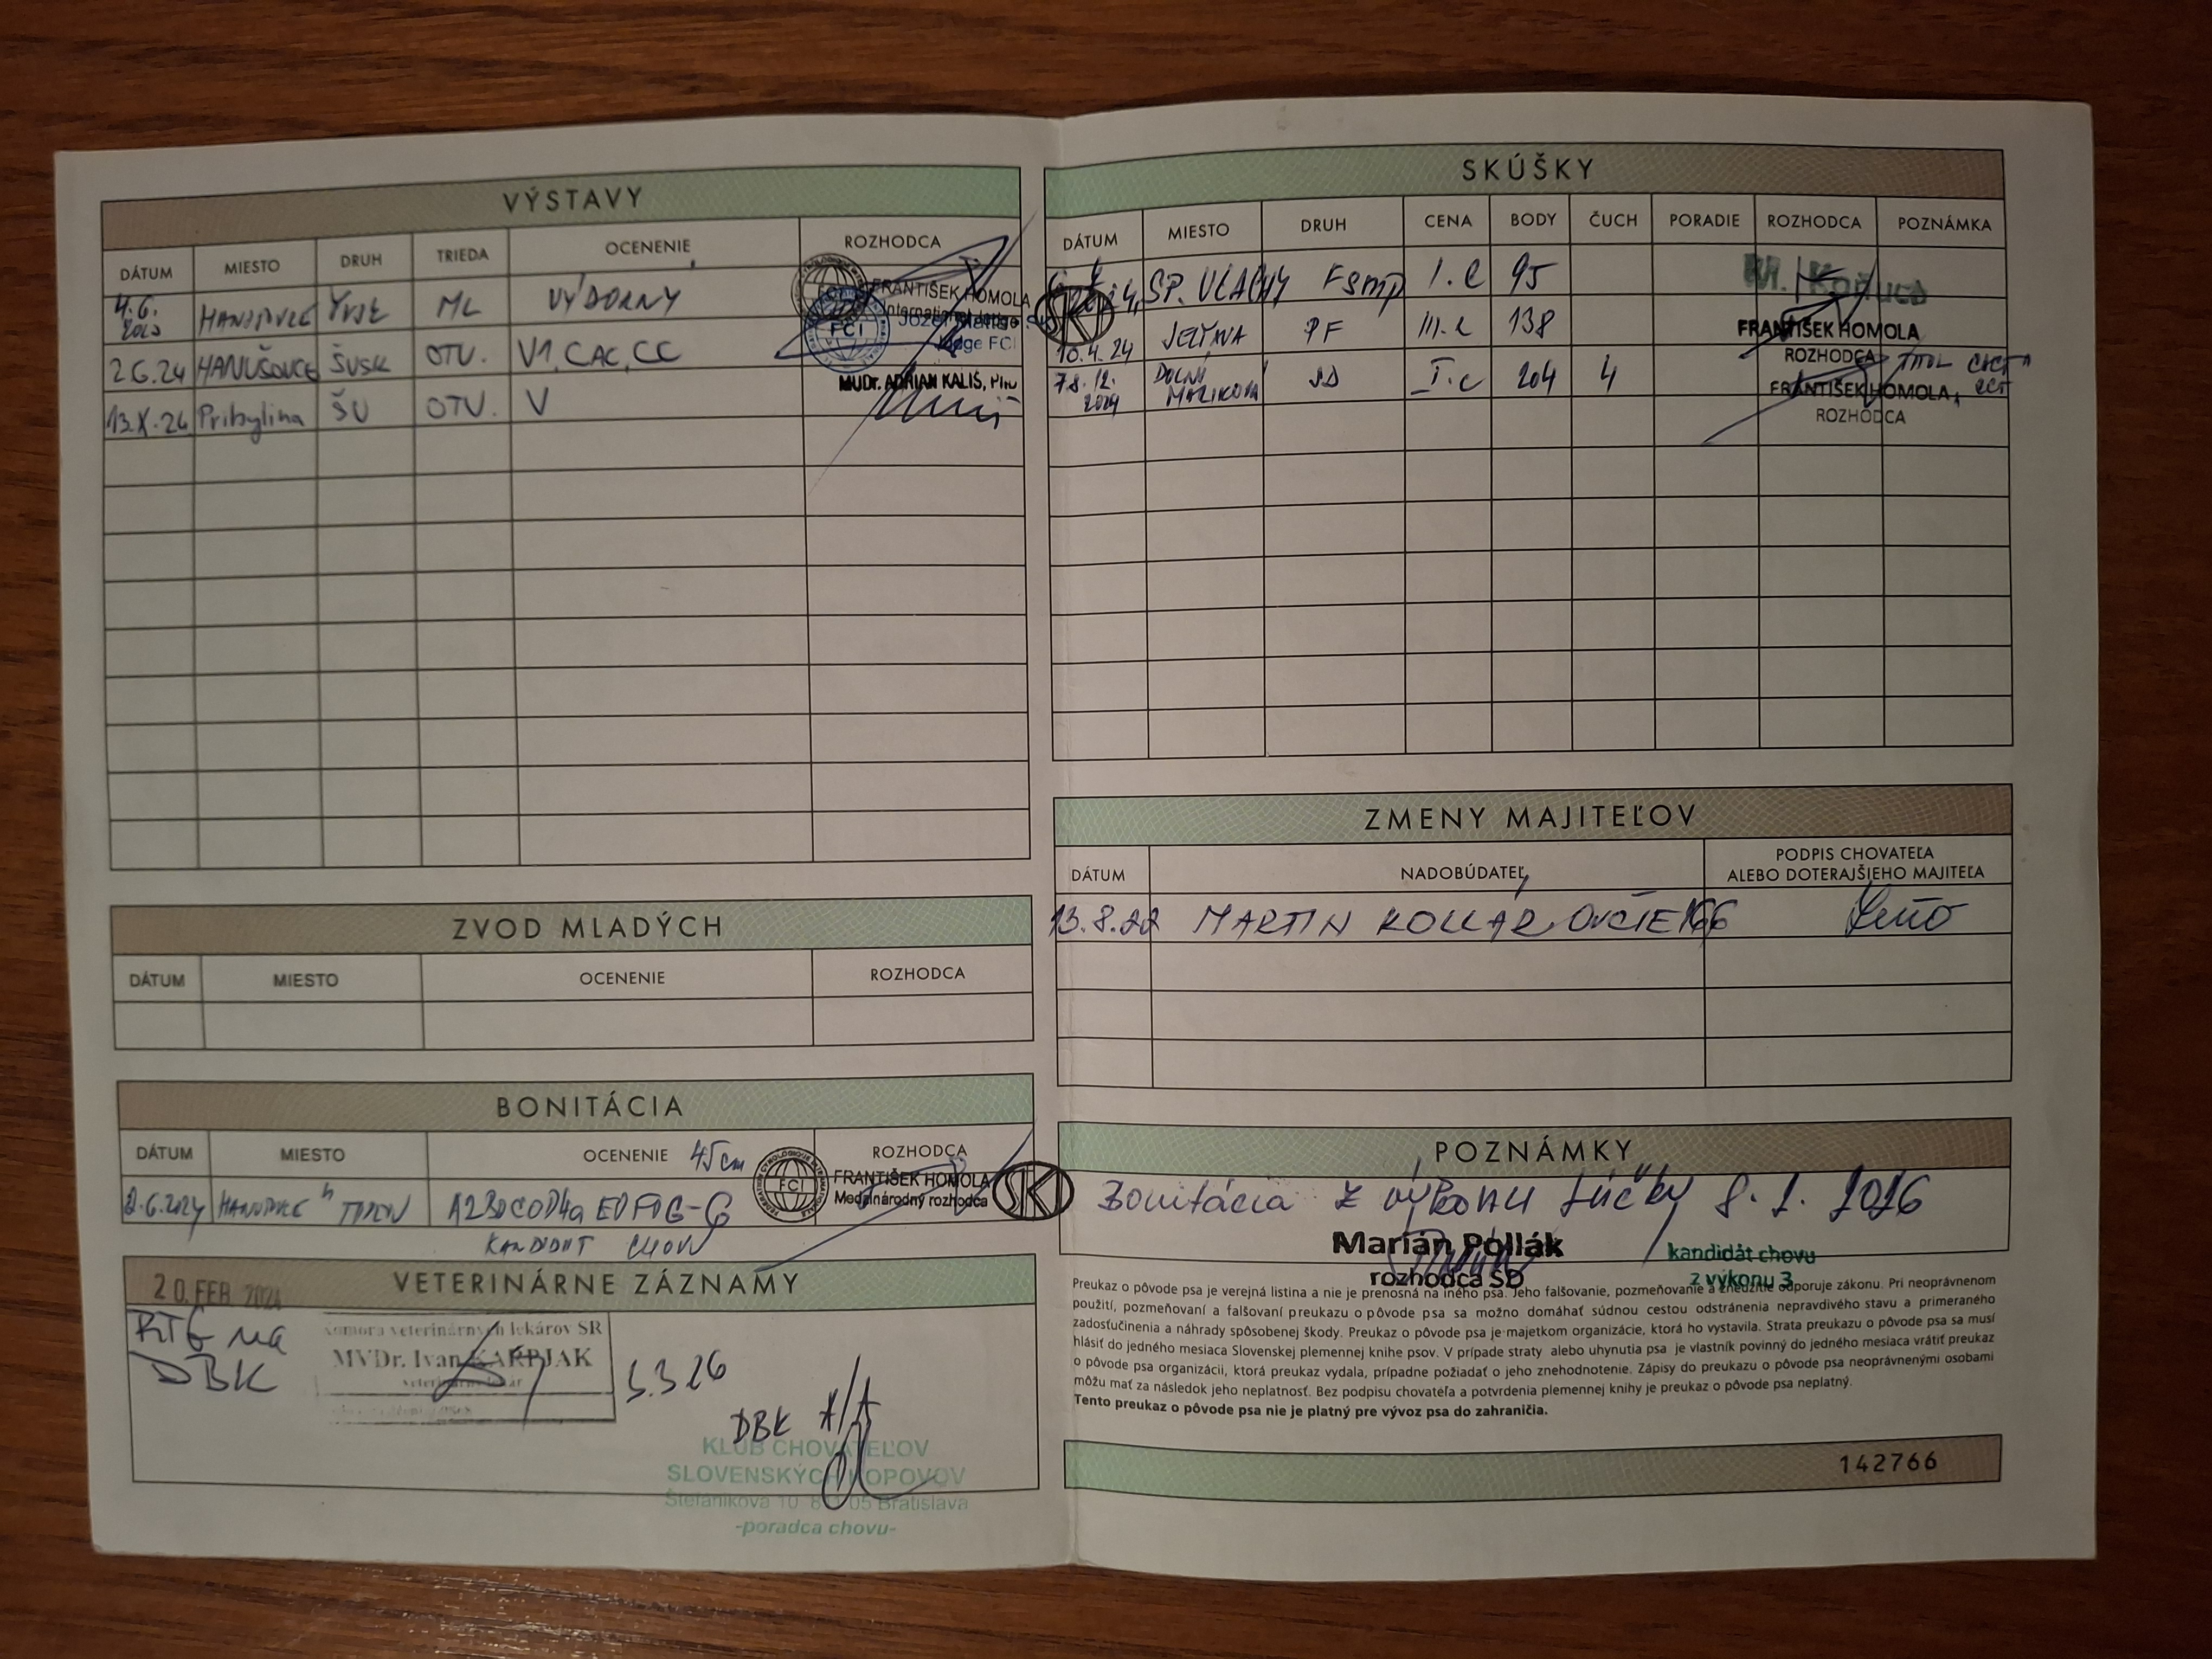 VÝSTAVY
DÁTUM MIESTO DRUH TRIEDA OCENENIE ROZHODCA
4.6. ML VÝBORNÝ FRANTIŠEK HOMOLA
International
2.6.24 HANUŠOVCE ŠVSK OTV. V1, CAC, CC Judge FCI
FCI
MUDr. ADRIAN KALIŠ, PhD
13.X.24 Pribylina ŠV OTV. V
ZVOD MLADÝCH
DÁTUM MIESTO OCENENIE ROZHODCA
BONITÁCIA
DÁTUM MIESTO OCENENIE 45cm ROZHODCA
FCI
FRANTIŠEK HOMOLA
Medzinárodný rozhodca
SKJ
2.6.2024
KANDIDÁT CHOVU
VETERINÁRNE ZÁZNAMY
20. FEB. 2024
RTG na
DBK
Komora veterinárnych lekárov SR
MVDr. Ivan KARPJAK
veterinárny lekár
5.3.26
DBK A/A
KLUB CHOVATEĽOV
SLOVENSKÝCH KOPOVOV
Štefánikova 10, 8 05 Bratislava
-poradca chovu-
SKÚŠKY
DÁTUM MIESTO DRUH CENA BODY ČUCH PORADIE ROZHODCA POZNÁMKA
SP. VLACHY FSMP I. C 95
PF III. C 138 FRANTIŠEK HOMOLA
ROZHODCA
10.4.24
7.8.12. 2024 DOLNÁ SD I. C 204 4 FRANTIŠEK HOMOLA
ROZHODCA
ZMENY MAJITEĽOV
DÁTUM NADOBÚDATEĽ PODPIS CHOVATEĽA
ALEBO DOTERAJŠIEHO MAJITEĽA
13.8.22 MARTIN KOLLÁR OVČIE 166
POZNÁMKY
Bonitácia z výkonu
Marián Pollák
rozhodca SD
kandidát chovu
z výkonu 3
Preukaz o pôvode psa je verejná listina a nie je prenosná na iného psa. Jeho falšovanie, pozmeňovanie a zneužitie odporuje zákonu. Pri neoprávnenom
použití, pozmeňovaní a falšovaní preukazu o pôvode psa sa možno domáhať súdnou cestou odstránenia nepravdivého stavu a primeraného
zadosťučinenia a náhrady spôsobenej škody. Preukaz o pôvode psa je majetkom organizácie, ktorá ho vystavila. Strata preukazu o pôvode psa sa musí
hlásiť do jedného mesiaca Slovenskej plemennej knihe psov. V prípade straty alebo uhynutia psa je vlastník povinný do jedného mesiaca vrátiť preukaz
o pôvode psa organizácii, ktorá preukaz vydala, prípadne požiadať o jeho znehodnotenie. Zápisy do preukazu o pôvode psa neoprávnenými osobami
môžu mať za následok jeho neplatnosť. Bez podpisu chovateľa a potvrdenia plemennej knihy je preukaz o pôvode psa neplatný.
Tento preukaz o pôvode psa nie je platný pre vývoz psa do zahraničia.
142766